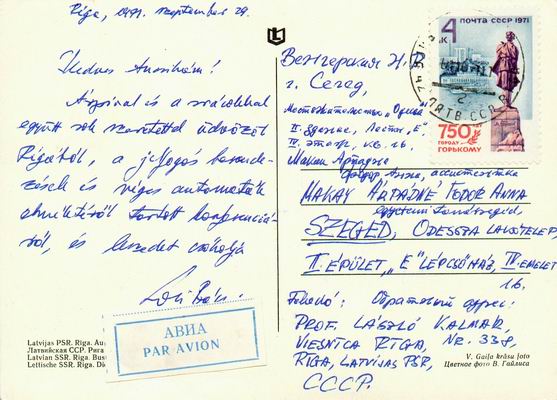 Riga, 1971. szeptember 29.
Kedves Annuskám!
Árpival és a srácokkal
együtt sok szeretettel üdvözöl
Rigából, a jelfogós berende-
zések és véges automaták
elméletéről tartott konferenciá-
ról, és kezedet csókolja
Laci Bácsi
АВИА
PAR AVION
Latvijas PSR. Rīga.
Латвийская ССР. Рига
Latvian SSR. Riga.
Lettische SSR. Riga.
4
ПОЧТА СССР 1971
750 ЛЕТ
ГОРОДУ
ГОРЬКОМУ
Венгерская Н.Р.
г. Сегед,
II. здание, Лестн. „Е"
IV. этаж, кв. 16.
Макаи Арпадне
Фодор Анна, ассистентка
MAKAY ÁRPÁDNÉ FODOR ANNA
egyetemi tanársegéd,
SZEGED, ODESSZA LAKÓTELEP,
II. ÉPÜLET, „E" LÉPCSŐHÁZ, IV. EMELET
16.
Feladó: Обратный адрес:
PROF. LÁSZLÓ KALMÁR,
VIESNICA RIGA, NR. 338,
RIGA, LATVIJAS PSR,
СССР.
V. Gaiļa krāsu foto
Цветное фото В. Гайлиса